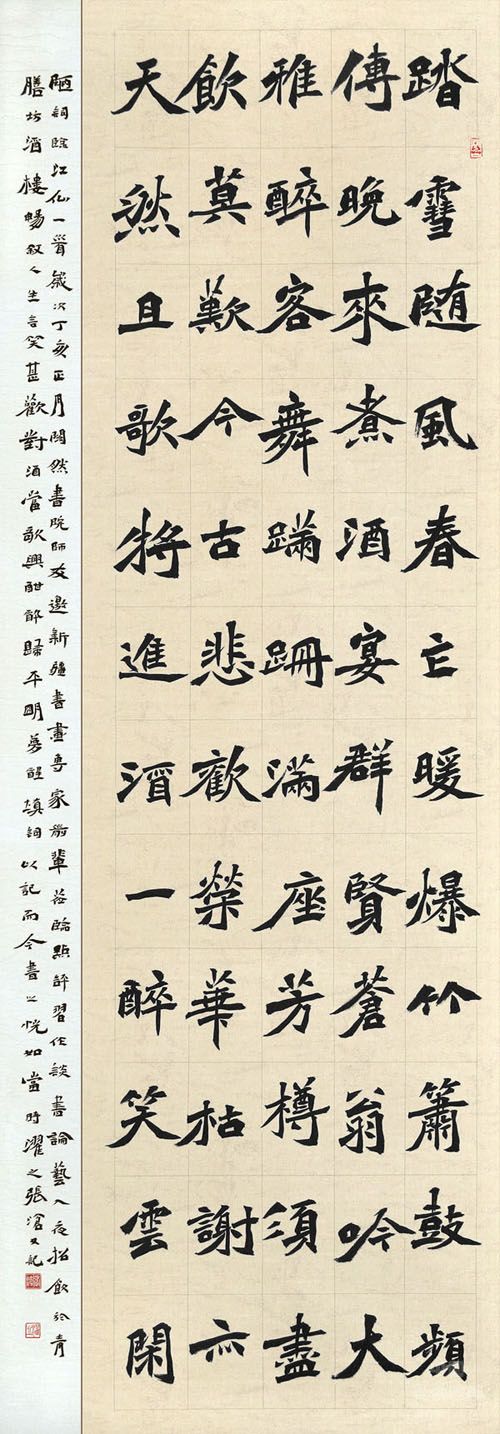 踏雪随風春亡暖爆竹簫鼓頻
傳晚來煮酒宴群賢蒼翁吟大
雅醉客舞蹣跚滿座芳樽須盡
飲莫歎今古悲歡榮華枯謝亦
天然且歌將進酒一醉笑雲閑
陋詞臨江仙一首歲次丁亥正月閑然書院師友邀新疆書畫專家前輩莅臨點評習作談書論藝入夜招飲於青
膳坊酒樓暢敘人生言笑甚歡對酒當歌興酣醉歸平明夢醒填詞以記而今書之恍如當時濯之張滄又記